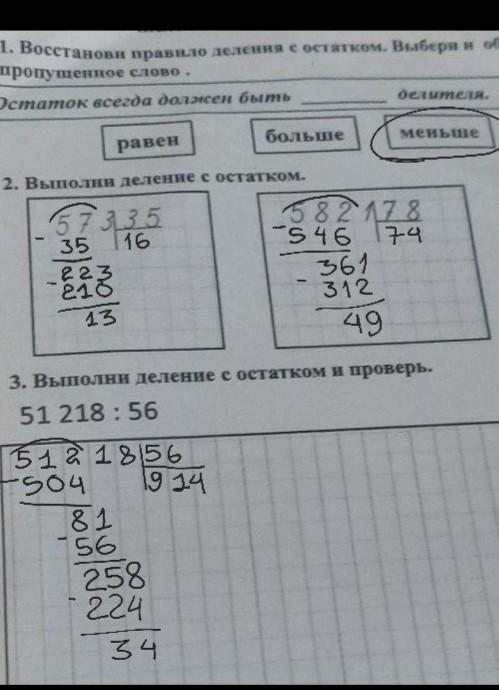 1. Восстанови правило деления с остатком. Выбери и об
пропущенное слово .
Остаток всегда должен быть ________ делителя.
равен больше меньше
2. Выполни деление с остатком.
573 35
- 35 16
223
- 210
13
5821 78
- 546 74
361
- 312
49
3. Выполни деление с остатком и проверь.
51 218 : 56
51218 56
- 504 914
81
- 56
258
- 224
34